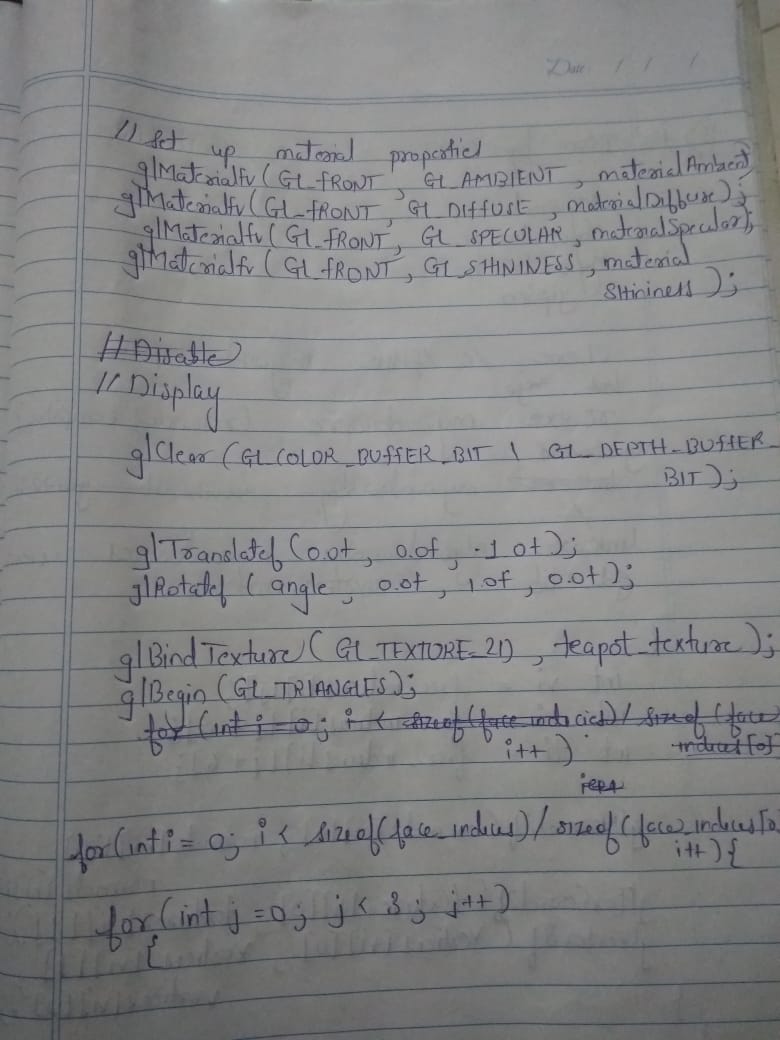 Date / / /
// Set up material properties
glMaterialfv (GL_FRONT, GL_AMBIENT, materialAmbent)
glMaterialfv (GL_FRONT, GL_DIFFUSE, materialDiffuse);
glMaterialfv (GL_FRONT, GL_SPECULAR, materialSpecular);
glMaterialfv (GL_FRONT, GL_SHININESS, material
Shininess);
// Disable
// Display
glClear (GL_COLOR_BUFFER_BIT | GL_DEPTH_BUFFER_
BIT);
glTranslatef (0.0f, 0.0f, -1.0f);
glRotatef (angle, 0.0f, 1.0f, 0.0f);
glBindTexture (GL_TEXTURE_2D, teapot_texture);
glBegin (GL_TRIANGLES);
for (int i = 0; i < sizeof (face_indicies) / sizeof (face
i++) indices [0]
for (int i = 0; i < sizeof (face_indices) / sizeof (face_indices[0
i++) {
for (int j = 0; j < 3; j++)
{